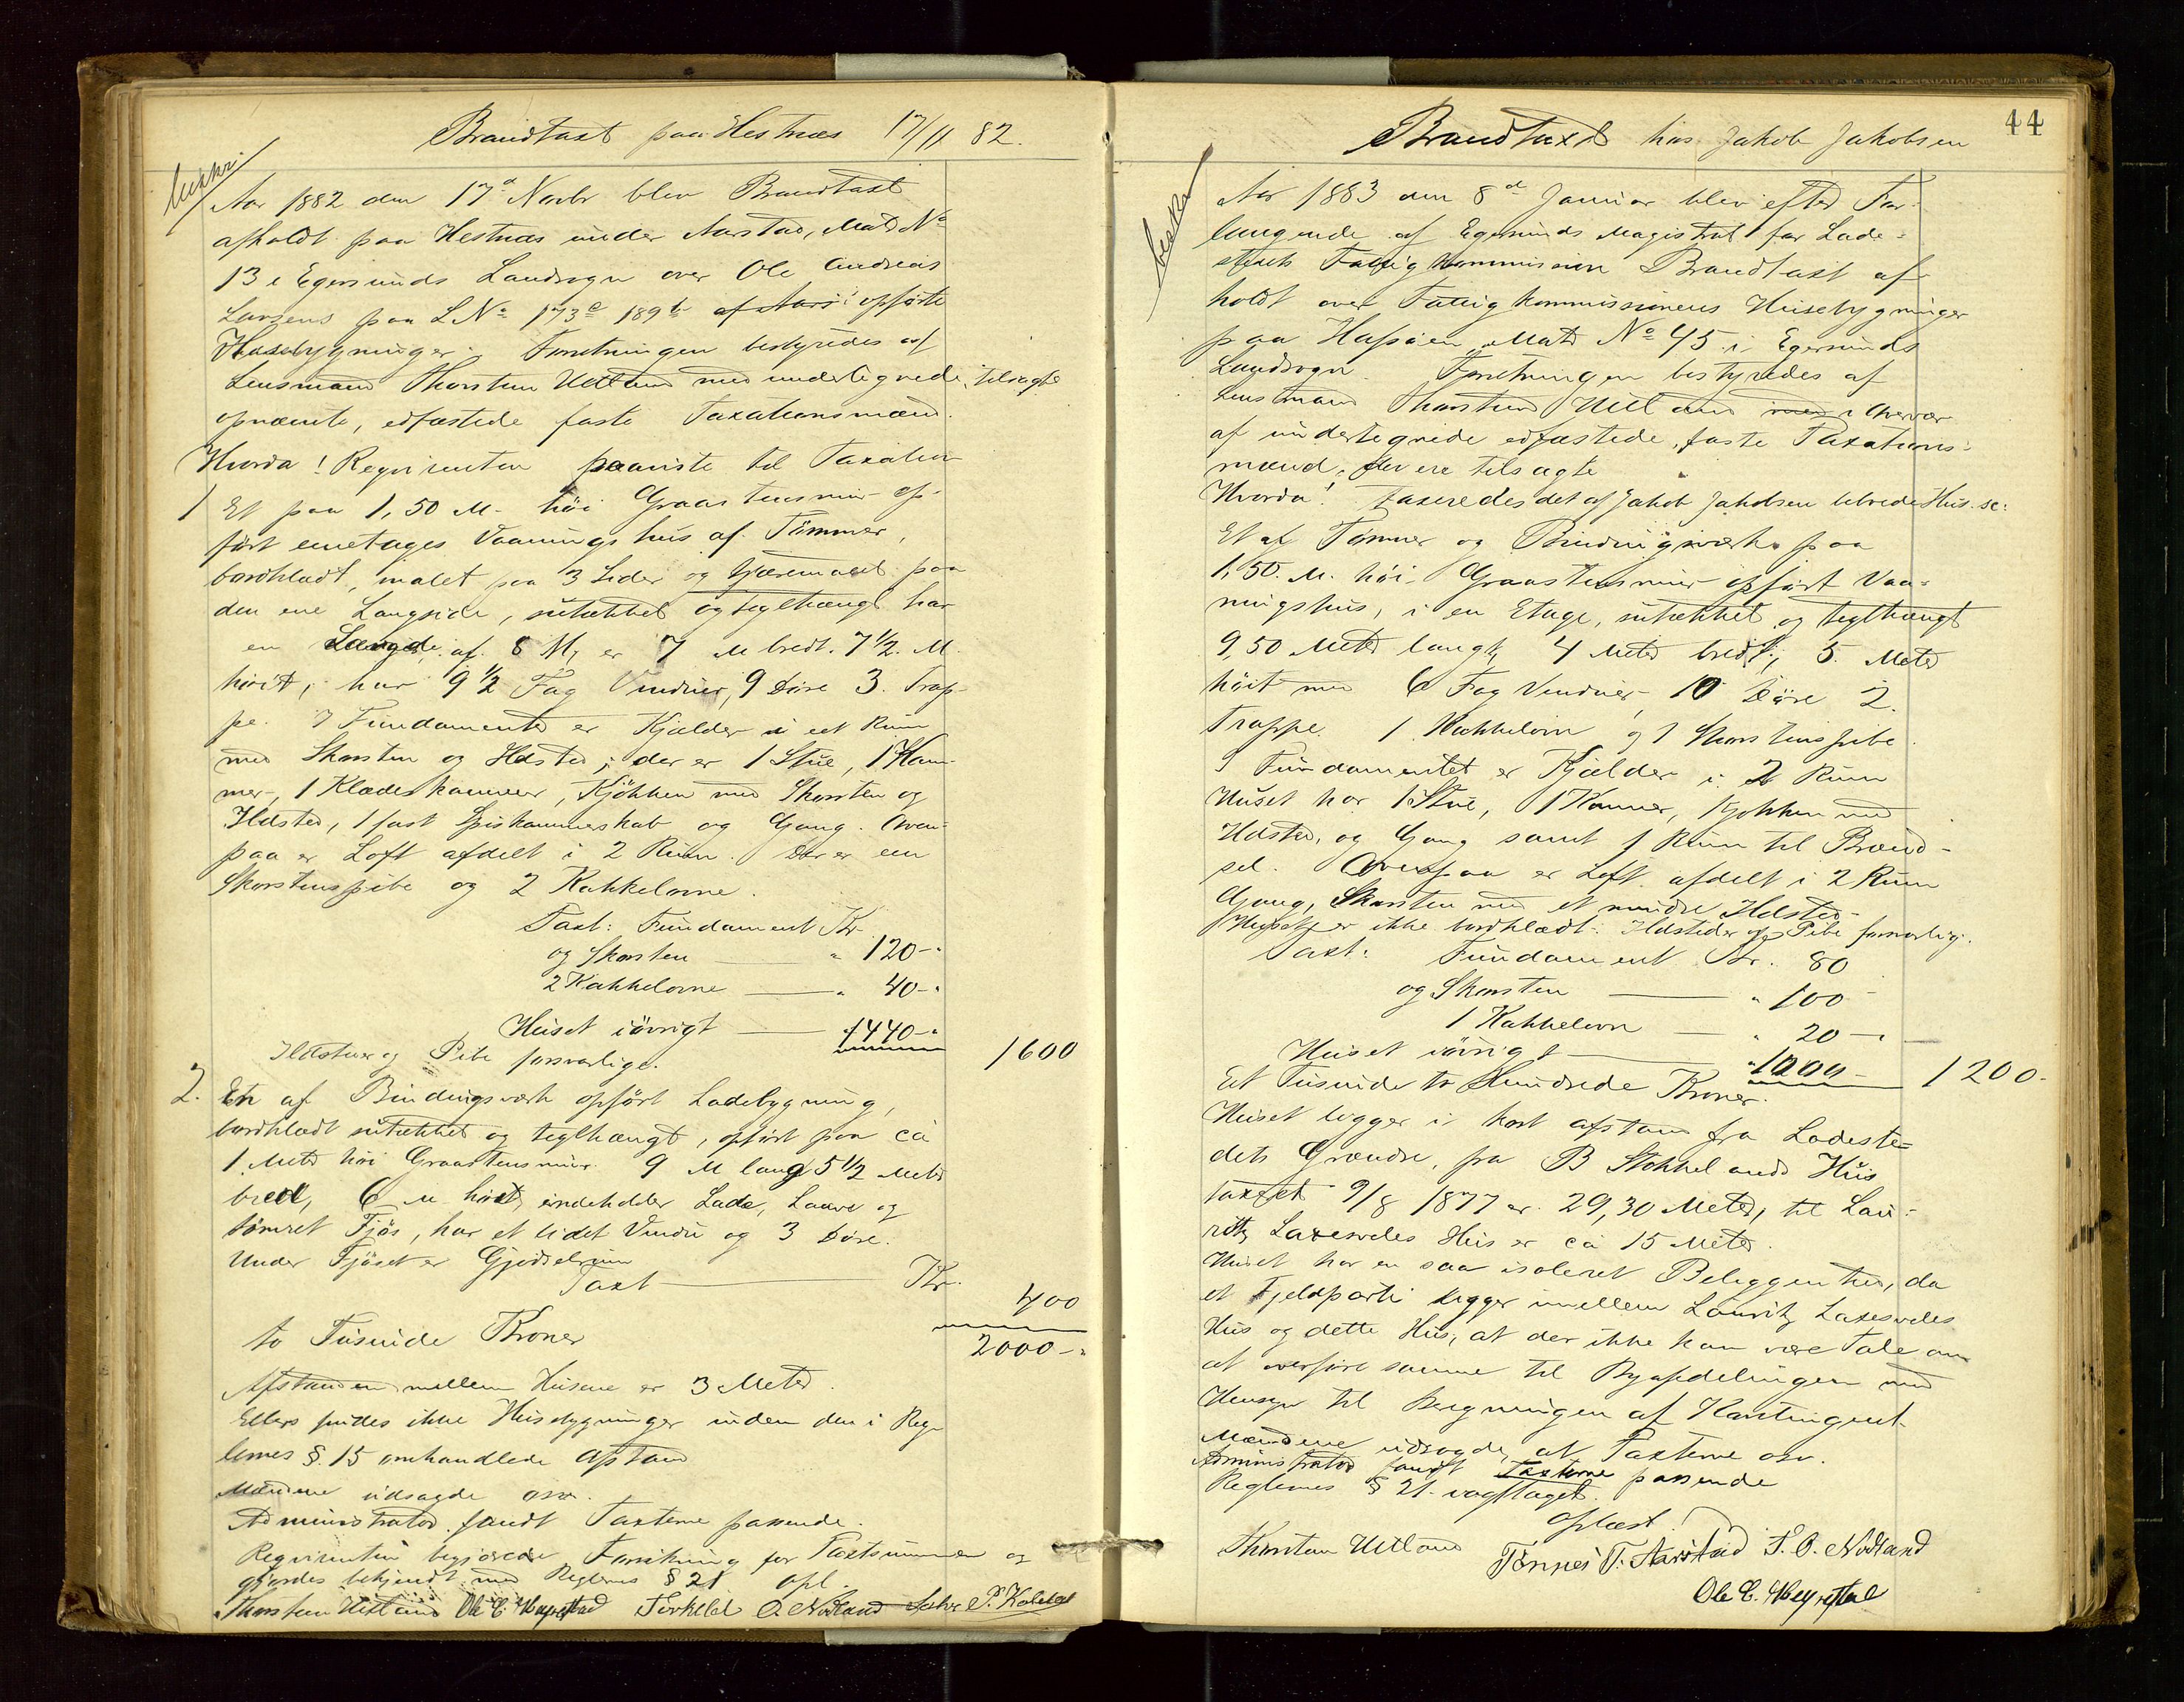 Brandtaxt paa Hestnæs 17/11 82.
Aar 1882 den 17d Novbr blev Brandtaxt
afholdt paa Hestnæs under Aarstad, Matr No
13 i Egersunds Landsogn over Ole Andreas
Larsens paa L No 173c 189b opførte
Husebygninger. Forretningen bestyredes af
Lensmand Thorsten Uetland med undertegnede, tilsagte
opnævnte, edfæstede faste Taxationsmænd.
Hvorda! Reqvirenten paaviste til Taxation
1 Et paa 1,50 M. høi Graastensmur op-
ført eenetages Vaaningshus af Tømmer,
bordklædt, malet paa 3 Sider og tjæremalet paa
den ene Langside, sutækket og teglhængt har
en Længde af 8 M, er 7 M bredt. 7 1/2 M
høit, har 9 1/2 Fag Vinduer, 9 Døre 3. Trap-
pe. I Fundamentet er Kjælder i et Rum
med Skorsten og Ildsted; der er 1 Stue, 1 Kam-
mer, 1 Klædeskammer, Kjøkken med Skorsten og
Ildsted, 1 fast Spiskammerskab og Gang. Oven-
paa er Loft afdelt i 2 Rum. Der er een
Skorstenspibe og 2 Kakkelovne.
Taxt: Fundament Kr
og Skorsten " 120-"
2 Kakkelovne " 40-"
Huset iøvrigt "1440-"
Ildsteder og Pibe forsvarlige. 1600
2. En af Bindingsværk opført Ladebygning,
bordklædt sutækket og teglhængt, opført paa ca
1 Meter høi Graastensmur 9 M lang 5 1/2 Meter
bred, 6 M høit, indeholder Lade, Laave og
tømret Fjøs, har et lidet Vindu og 3 Døre.
Under Fjøset er Gjødselrum
Taxt Kr. 400
to Tusinde Kroner 2000-"
Afstanden mellem Husene er 3 Meter.
Ellers findes ikke Husebygninger inden den i Reg-
lernes § 15 omhandlede Afstand
Mændene udsagde osv.
Administrator fandt Taxterne passende.
Reqvirenten begjærede Forsikring for Taxtsummen og
gjordes bekjendt med Reglernes § 21 Opl.
Thorsten Uetland Ole E. Møgrestad Torkild O. Nødland
Brandtaxt hos Jakob Jakobsen 44
Aar 1883 den 8de Januar blev efter For-
langende af Egersunds Magistrat for Lade-
stedets Fattigkommission Brandtaxt af-
holdt over Fattigkommissionens Husebygninger
paa Hafsøen, Matr No 45 i Egersunds
Landsogn. Forretningen bestyredes af
Lensmand Thorsten Uetland med i Overvær
af undertegnede edfæstede, faste Taxations-
mænd, der ere tilsagte
Hvorda! Taxeredes det af Jakob Jakobsen beboede Hus. sc:
Et af Tømmer og Bindingsværk paa
1,50. M. høi Graastensmur opført Vaa-
ningshus, i en Etage, sutækket og teglhængt
9,50 Meter langt, 4 Meter bredt, 5. Meter
høit med 6 Fag Vinduer, 10 Døre 2.
Trappe. 1 Kakkelovn og 1 Skorstenspibe.
I Fundamentet er Kjælder i 2 Rum
Huset har 1 Stue, 1 Kammer, Kjøkken med
Ildsted, og Gang samt 1 Rum til Brænd-
sel. Ovenpaa er Loft afdelt i 2 Rum
Gang, Skorsten med et mindre Ildsted.
Huset er ikke bordklædt. Ildsteder og Pibe forsvarlig.
Taxt: Fundament Kr. 80
og Skorsten " 100
1 Kakkelovn " 20-"
Huset iøvrigt "1000- 1200-
Et Tusinde to Hundrede Kroner.
Huset ligger i kort Afstand fra Ladeste-
dets Grændse, fra B Stokkelands Hus
taxeret 9/8 1877 er 29,30 Meter, til Lau-
ritz Laxesveles Hus er ca 15 Meter.
Huset har en saa isoleret Beliggenhed, da
et Fjeldparti ligger imellem Lauritz Laxesveles
Hus og dette Hus, at der ikke kan være Tale om
at overføre samme til Byafdelingen med
Hensyn til Beregningen af Kontingent.
Mændene udsagde, at Taxterne osv.
Administrator fandt Taxterne passende
Reglernes § 21 vagttaget.
Oplæst.
Thorsten Uetland Tønnes T. Aarstad T. O. Nødland
Ole E. Møgrestad